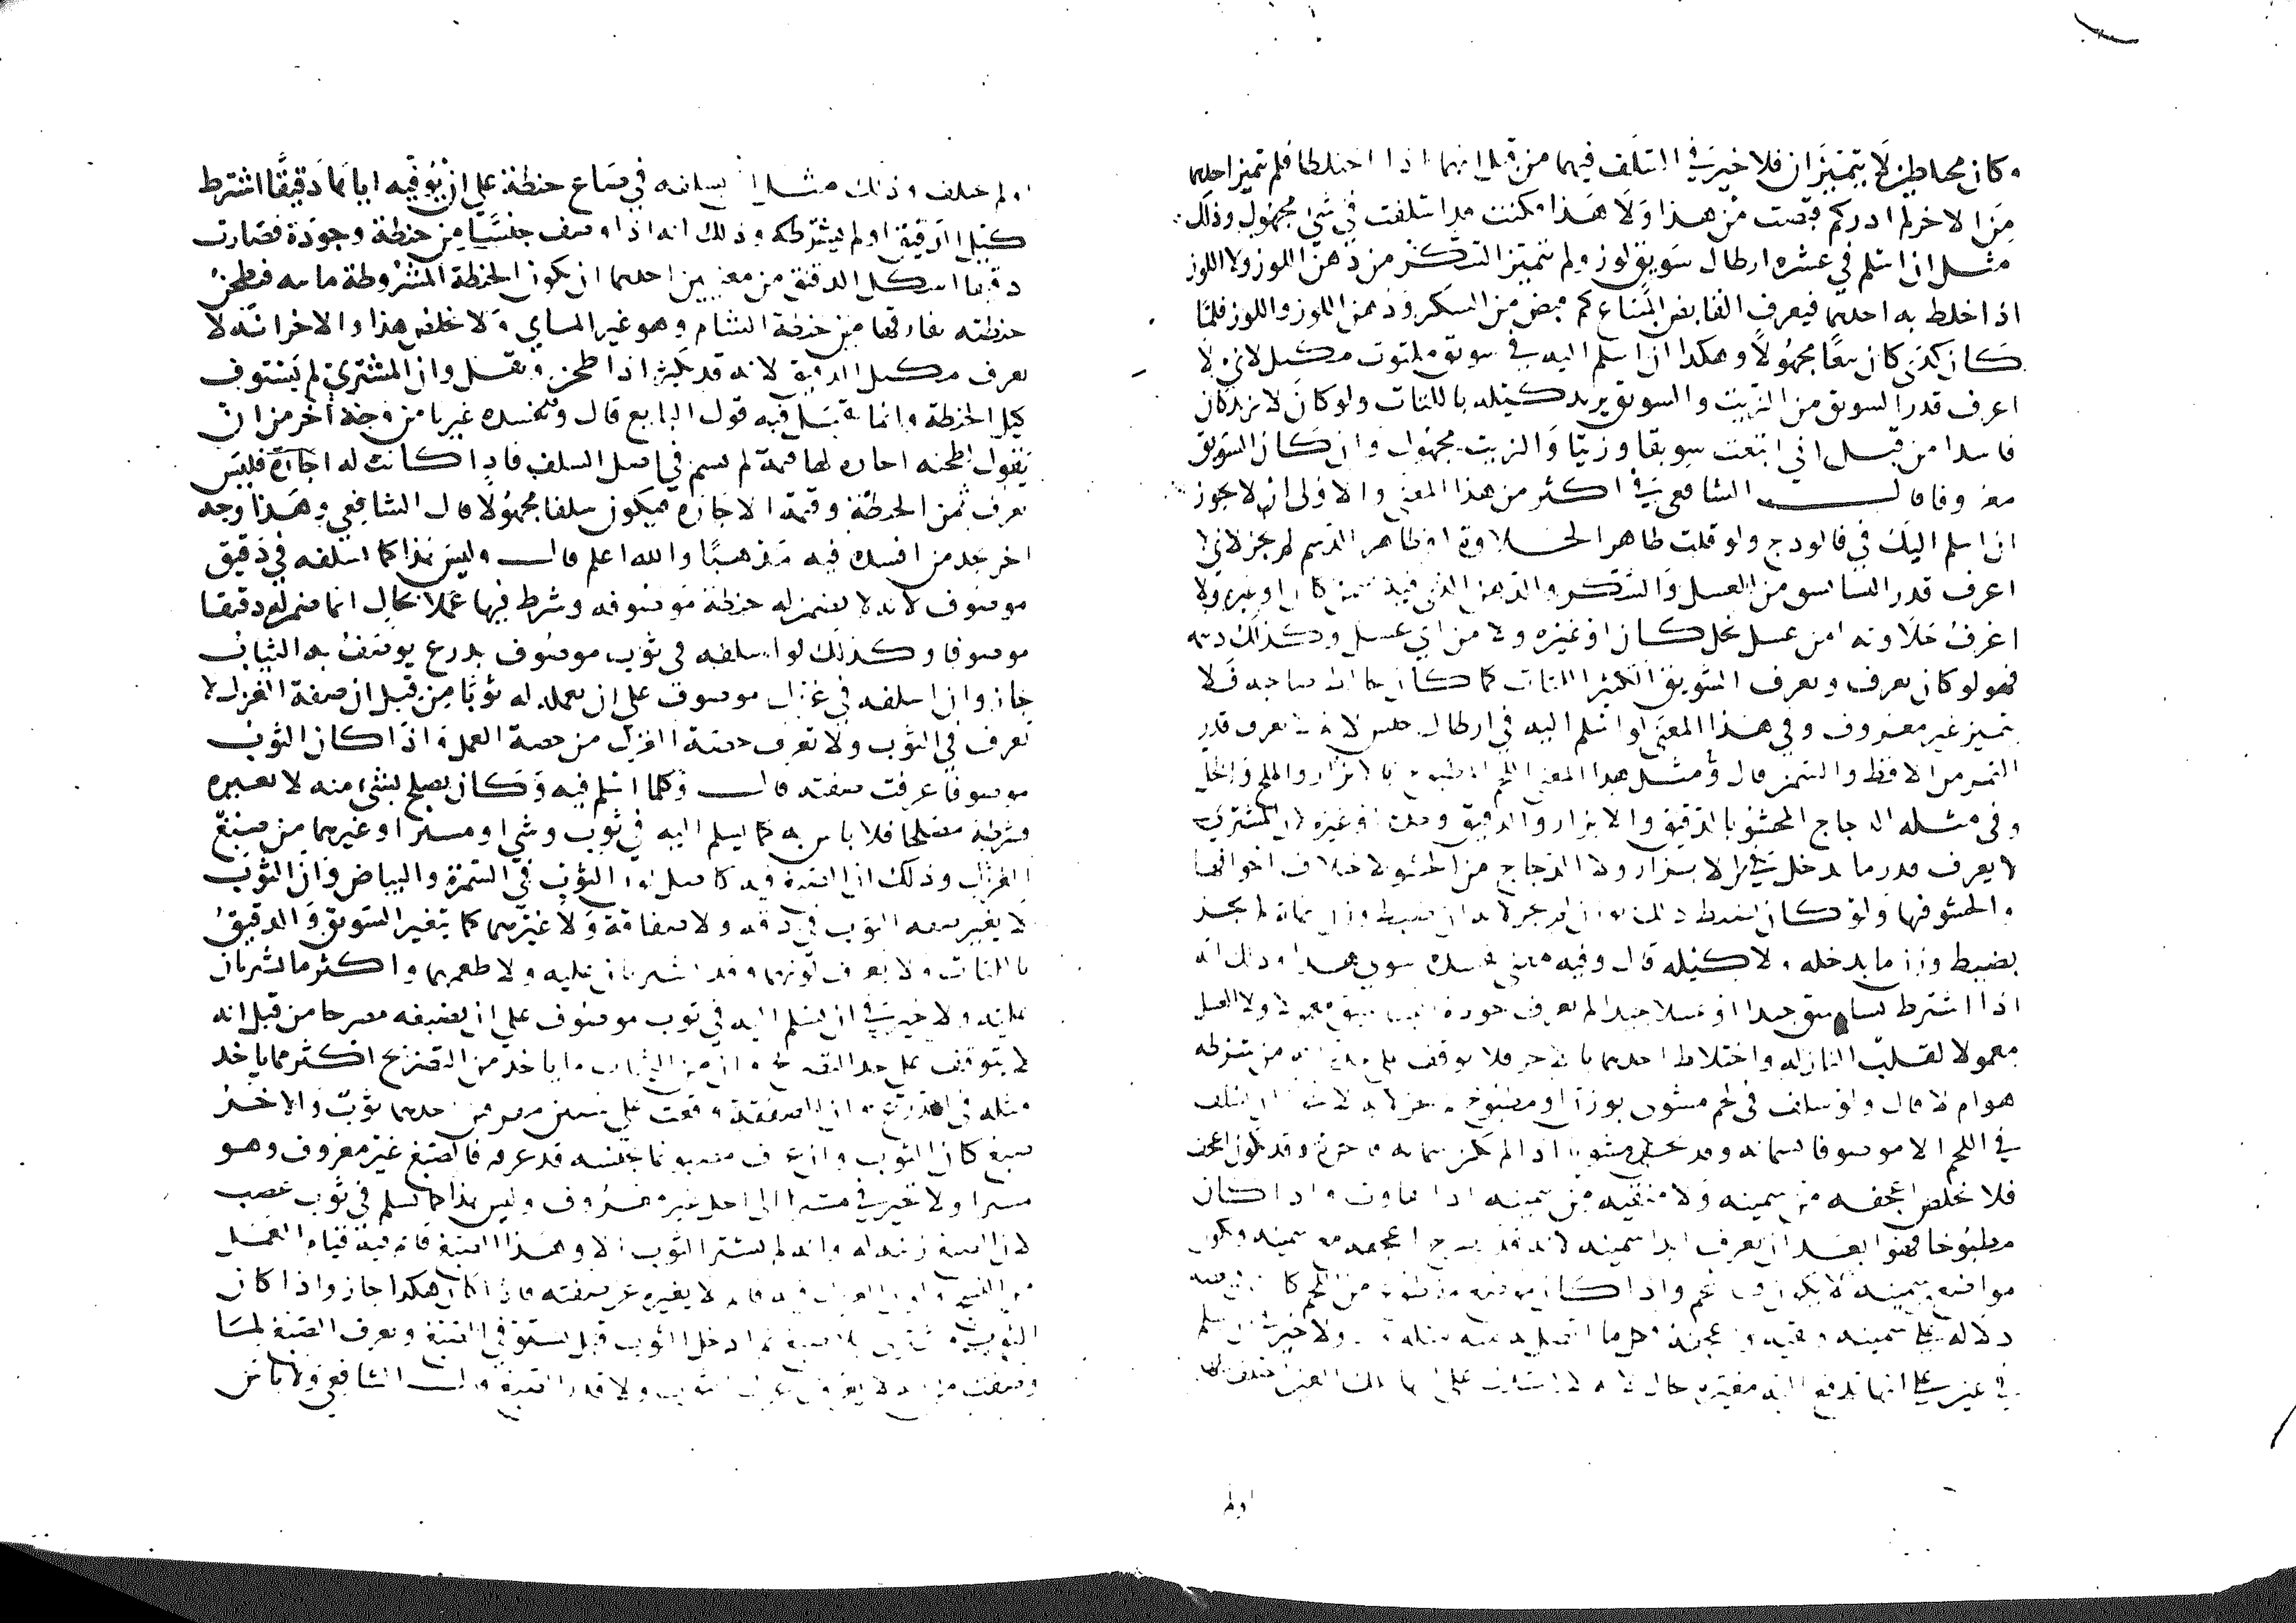 وكان مختلطين لا يتميزان فلا خير في السلف فيهما من قبل انهما اذا اختلطا فلم تميز احدهما
من الاخر لم ادر كم قبضت من هذا ولا هذا فكنت قد اسلفت في شي مجهول وذلك
مثل ان اسلم في عشره ارطال سويق لوز ولم تتميز السكر من دهن اللوز ولا اللوز
اذا خلط به احدهما فيعرف القابض المبتاع كم قبض من السكر ودهن اللوز واللوز فلما
كان كذي كان بيعا مجهولا وهكذا ان اسلم اليه في سويق ملتوت مكيل لاني لا
اعرف قدر السويق من الزيت والسويق يزيد كيله باللتات ولو كان لا يزيد كان
فاسدا من قبل اني ابتعت سويقا وزيتا والزيت مجهول وان كان السويق
معروفا قال الشافعي في اكثر من هذا المعنى والاولى ان لا يجوز
ان اسلم اليك في فالودج ولو قلت ظاهر الحلاوة او ظاهر الدسم لم يجز لاني لا
اعرف قدر النشاستق من العسل والسكر والدهن الذي فيه كان او غيره ولا
اعرف حلاوته امن عسل نحل كان او غيره ولا من اي عسل وكذلك دسمه
فهو لو كان يعرف ويعرف السويق الكثير اللتات كما كان صاحبه فلا
يتميز غير معروف وفي هذا المعنى لو اسلم اليه في ارطال حيس لانه لا يعرف قدر
التمر من الاقط والسمن قال ومثل هذا المعنى اللحم المطبوخ بالابزار والملح والخل
وفي مثله الدجاج المحشو بالدقيق والابزار والدقيق وحده او غيره لان المشتري
لا يعرف قدر ما يدخل من الابزار ولا الدجاج من الحشو لاختلاف اجوافها
والحشو فيها ولو كان يضبط ذلك بوزن لم يجز لانه ان ضبط وزن الجملة لم يجز
يضبط وزن ما يدخله ولا كيله قال وفيه معنى يفسده سوى هذا وذلك انه
اذا اشترط نشاستق جيدا او عسلا جيدا لم يعرف جودة النشاستق معمولا ولا العسل
معمولا لقلب النار له واختلاط احدهما بالاخر فلا يوقف على حده انه من شرطه
هو ام لا قال ولو سلف في لحم مشوي بوزن او مطبوخ لم يجز لانه لا يسلف
في اللحم الا موصوفا بسمانه وقد يخفى مشويا اذا لم يكن سمانه وقد يكون اعجف
فلا يخلص اعجفه من سمينه ولا منقيه من سمينه اذا تقارب واذا كان
مطبوخا فهو ابعد ان يعرف ابدا سمينه لانه قد يطرح اعجفه مع سمينه ويكون
مواضع سمينه لا يكون فيها شحم واذا كان موضع مقطوع من اللحم كانت في بعضه
دلاله على سمينه ومنقيه وعجفه وكل ما اتصل به منه مثله ولا خير في ان يسلم
في عين على انها تدفع اليه مغيره بحال لانه لا يستدرك على انها تلك العين
اولم
او لم يختلف وذلك مثل ان يسلفه في صاع حنطة على ان يوفيه اياها دقيقا اشترط
كيل الدقيق او لم يشترطه وذلك انه اذا وصف جنسا من حنطة وجودة فصارت
دقيقا اشكل الدقيق من معنيين احدهما ان يكون الحنطة المشروطة مايية فيطحن
حنطته يقاربها من حنطة الشام وهو غير المايي ولا يخلص هذا والاخر انه لا
يعرف مكيل الدقيق لانه قد يكثر اذا طحن ويقل وان المشتري لم يستوف
كيل الحنطة وانما يقبل فيه قول البايع قال وقد يفسده غيرنا من وجه اخر من ان
يقول لطحنه اجاره لها قيمة لم يسم في اصل السلف فاذا كانت له اجاره فليس
يعرف ثمن الحنطة وقيمة الاجاره فيكون سلفا مجهولا قال الشافعي وهذا وجه
اخر يجد من افسده فيه مذهبا والله اعلم قال وليس هذا كما اسلفه في دقيق
موصوف لانه لا يضمن له حنطة موصوفه وشرط فيها عملا بحال انما ضمن له دقيقا
موصوفا وكذلك لو اسلفه في ثوب موصوف بذرع يوصف به الثياب
جاز وان اسلفه في غزل موصوف على ان يعمله له ثوبا من قبل ان صفة الغزل لا
تعرف في الثوب ولا تعرف حصة الغزل من حصة العمل واذا كان الثوب
موصوفا عرفت صفته قال وكلما اسلم فيه وكان يصلح بشي منه لا بغيره
فشرطه مصلحا فلا باس به كما يسلم اليه في ثوب وشي او مسير او غيرهما من صبغ
الغزل وذلك ان الصبغ فيه كاصل لون الثوب في السمرة والبياض وان الصبغ
لا يغير صفه الثوب في دقه ولا صفاقة ولا غيرهما كما يتغير السويق والدقيق
باللتات ولا يعرف لونهما وقد يشتريان عليه ولا طعمهما واكثر ما يشتريان
عليه ولا خير في ان يسلم اليه في ثوب موصوف على ان يصبغه مضرجا من قبل انه
لا يتوقف على حد التضريج وان من الثياب ما ياخذ من التضريج اكثر مما ياخذ
مثله في الذرع وان الصفقة وقعت على شيين متفرقين احدهما ثوب والاخر
صبغ كان الثوب وان عرف مصبوغا بجنسه قد عرفه فالصبغ غير معروف وهو
مشترا ولا خير في مشترا الى اجل غير معروف وليس هذا كما يسلم في ثوب عصب
لان الصبغ زينه له وانه لم يشتر الثوب الا وهذا الصبغ قايم فيه قيام العمل
من النسج ولون الغزل فيه قايم لا يغيره عن صفته فاذا كان هكذا جاز واذا كان
الثوب مشترى بلا صبغ ثم ادخل الثوب قبل يستوفي الصبغ ويعرف الصبغ لما
وصفت من انه لا يعرف غزل الثوب ولا قدر الصبغ قال الشافعي ولا باس